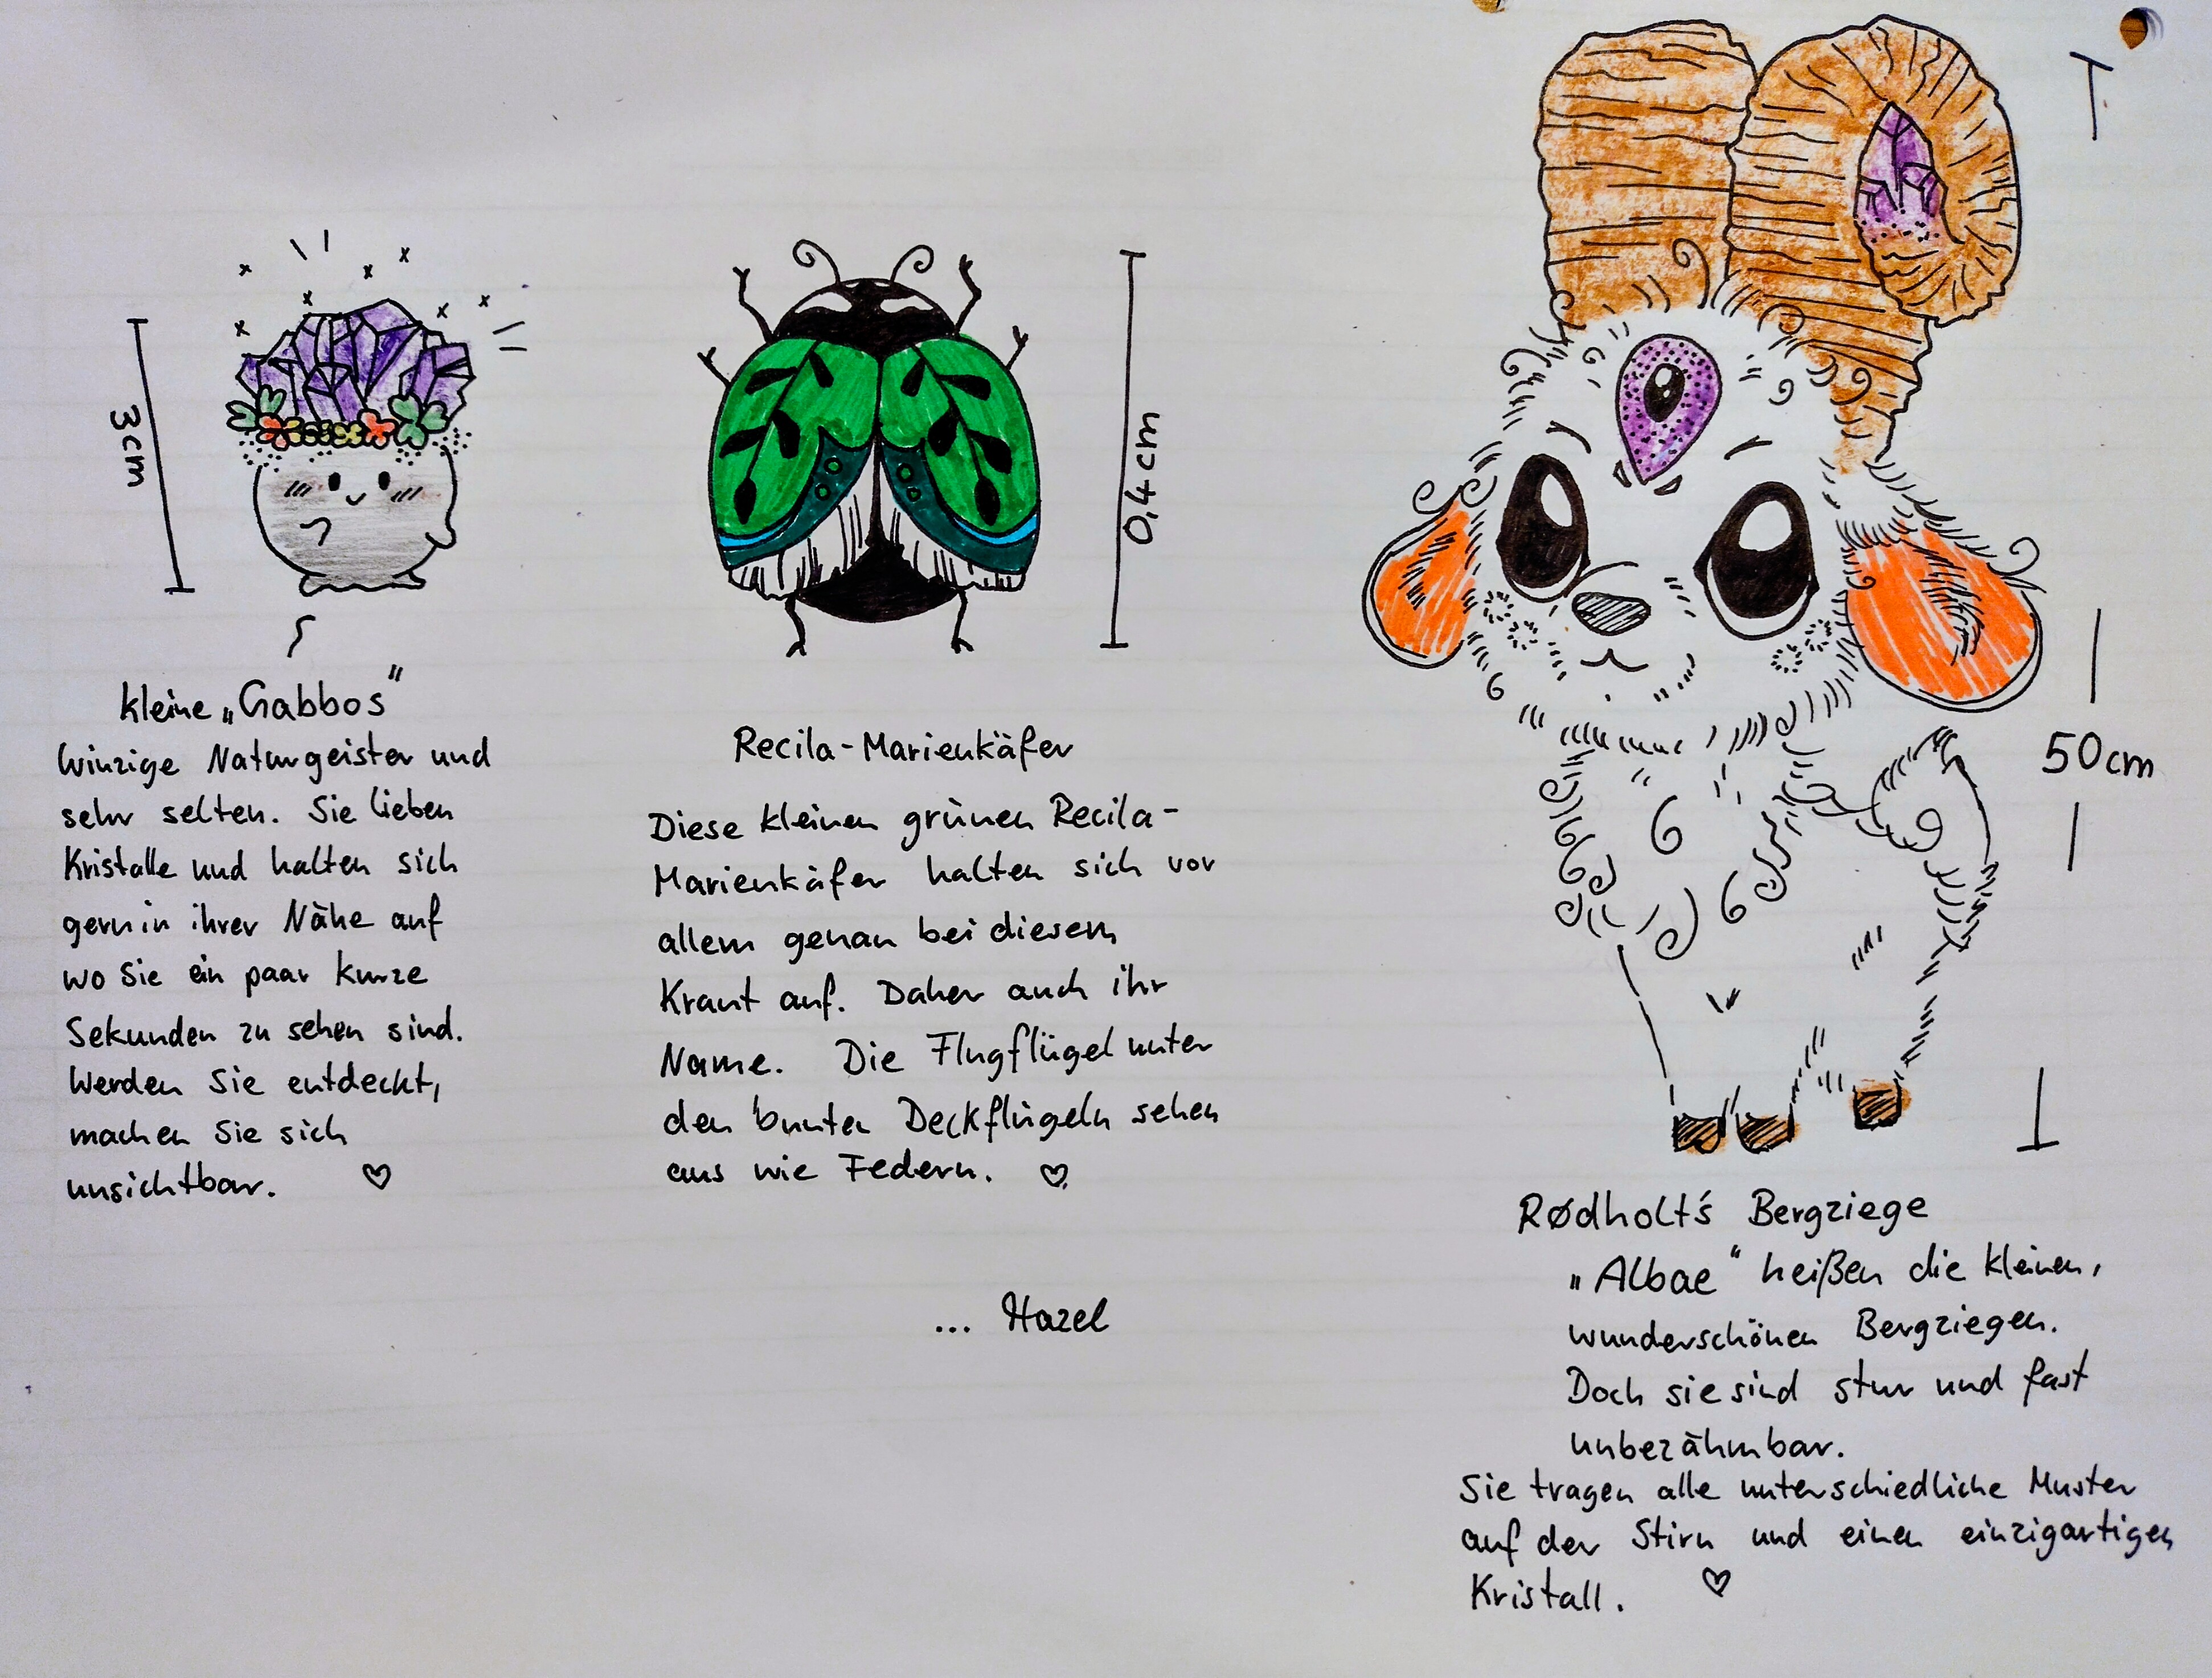 3cm
kleine „Gabbos"
Winzige Naturgeister und
sehr selten. Sie lieben
Kristalle und halten sich
gern in ihrer Nähe auf
wo Sie ein paar kurze
Sekunden zu sehen sind.
Werden Sie entdeckt,
machen Sie sich
unsichtbar. ♡
0,4cm
Recila-Marienkäfer
Diese kleinen grünen Recila-
Marienkäfer halten sich vor
allem genau bei diesem
Kraut auf. Daher auch ihr
Name. Die Flugflügel unter
den bunten Deckflügeln sehen
aus wie Federn. ♡
... Hazel
50cm
Rødholt´s Bergziege
„Albae" heißen die kleinen,
wunderschönen Bergziegen.
Doch sie sind stur und fast
unbezähmbar.
Sie tragen alle unterschiedliche Muster
auf der Stirn und einen einzigartigen
Kristall. ♡